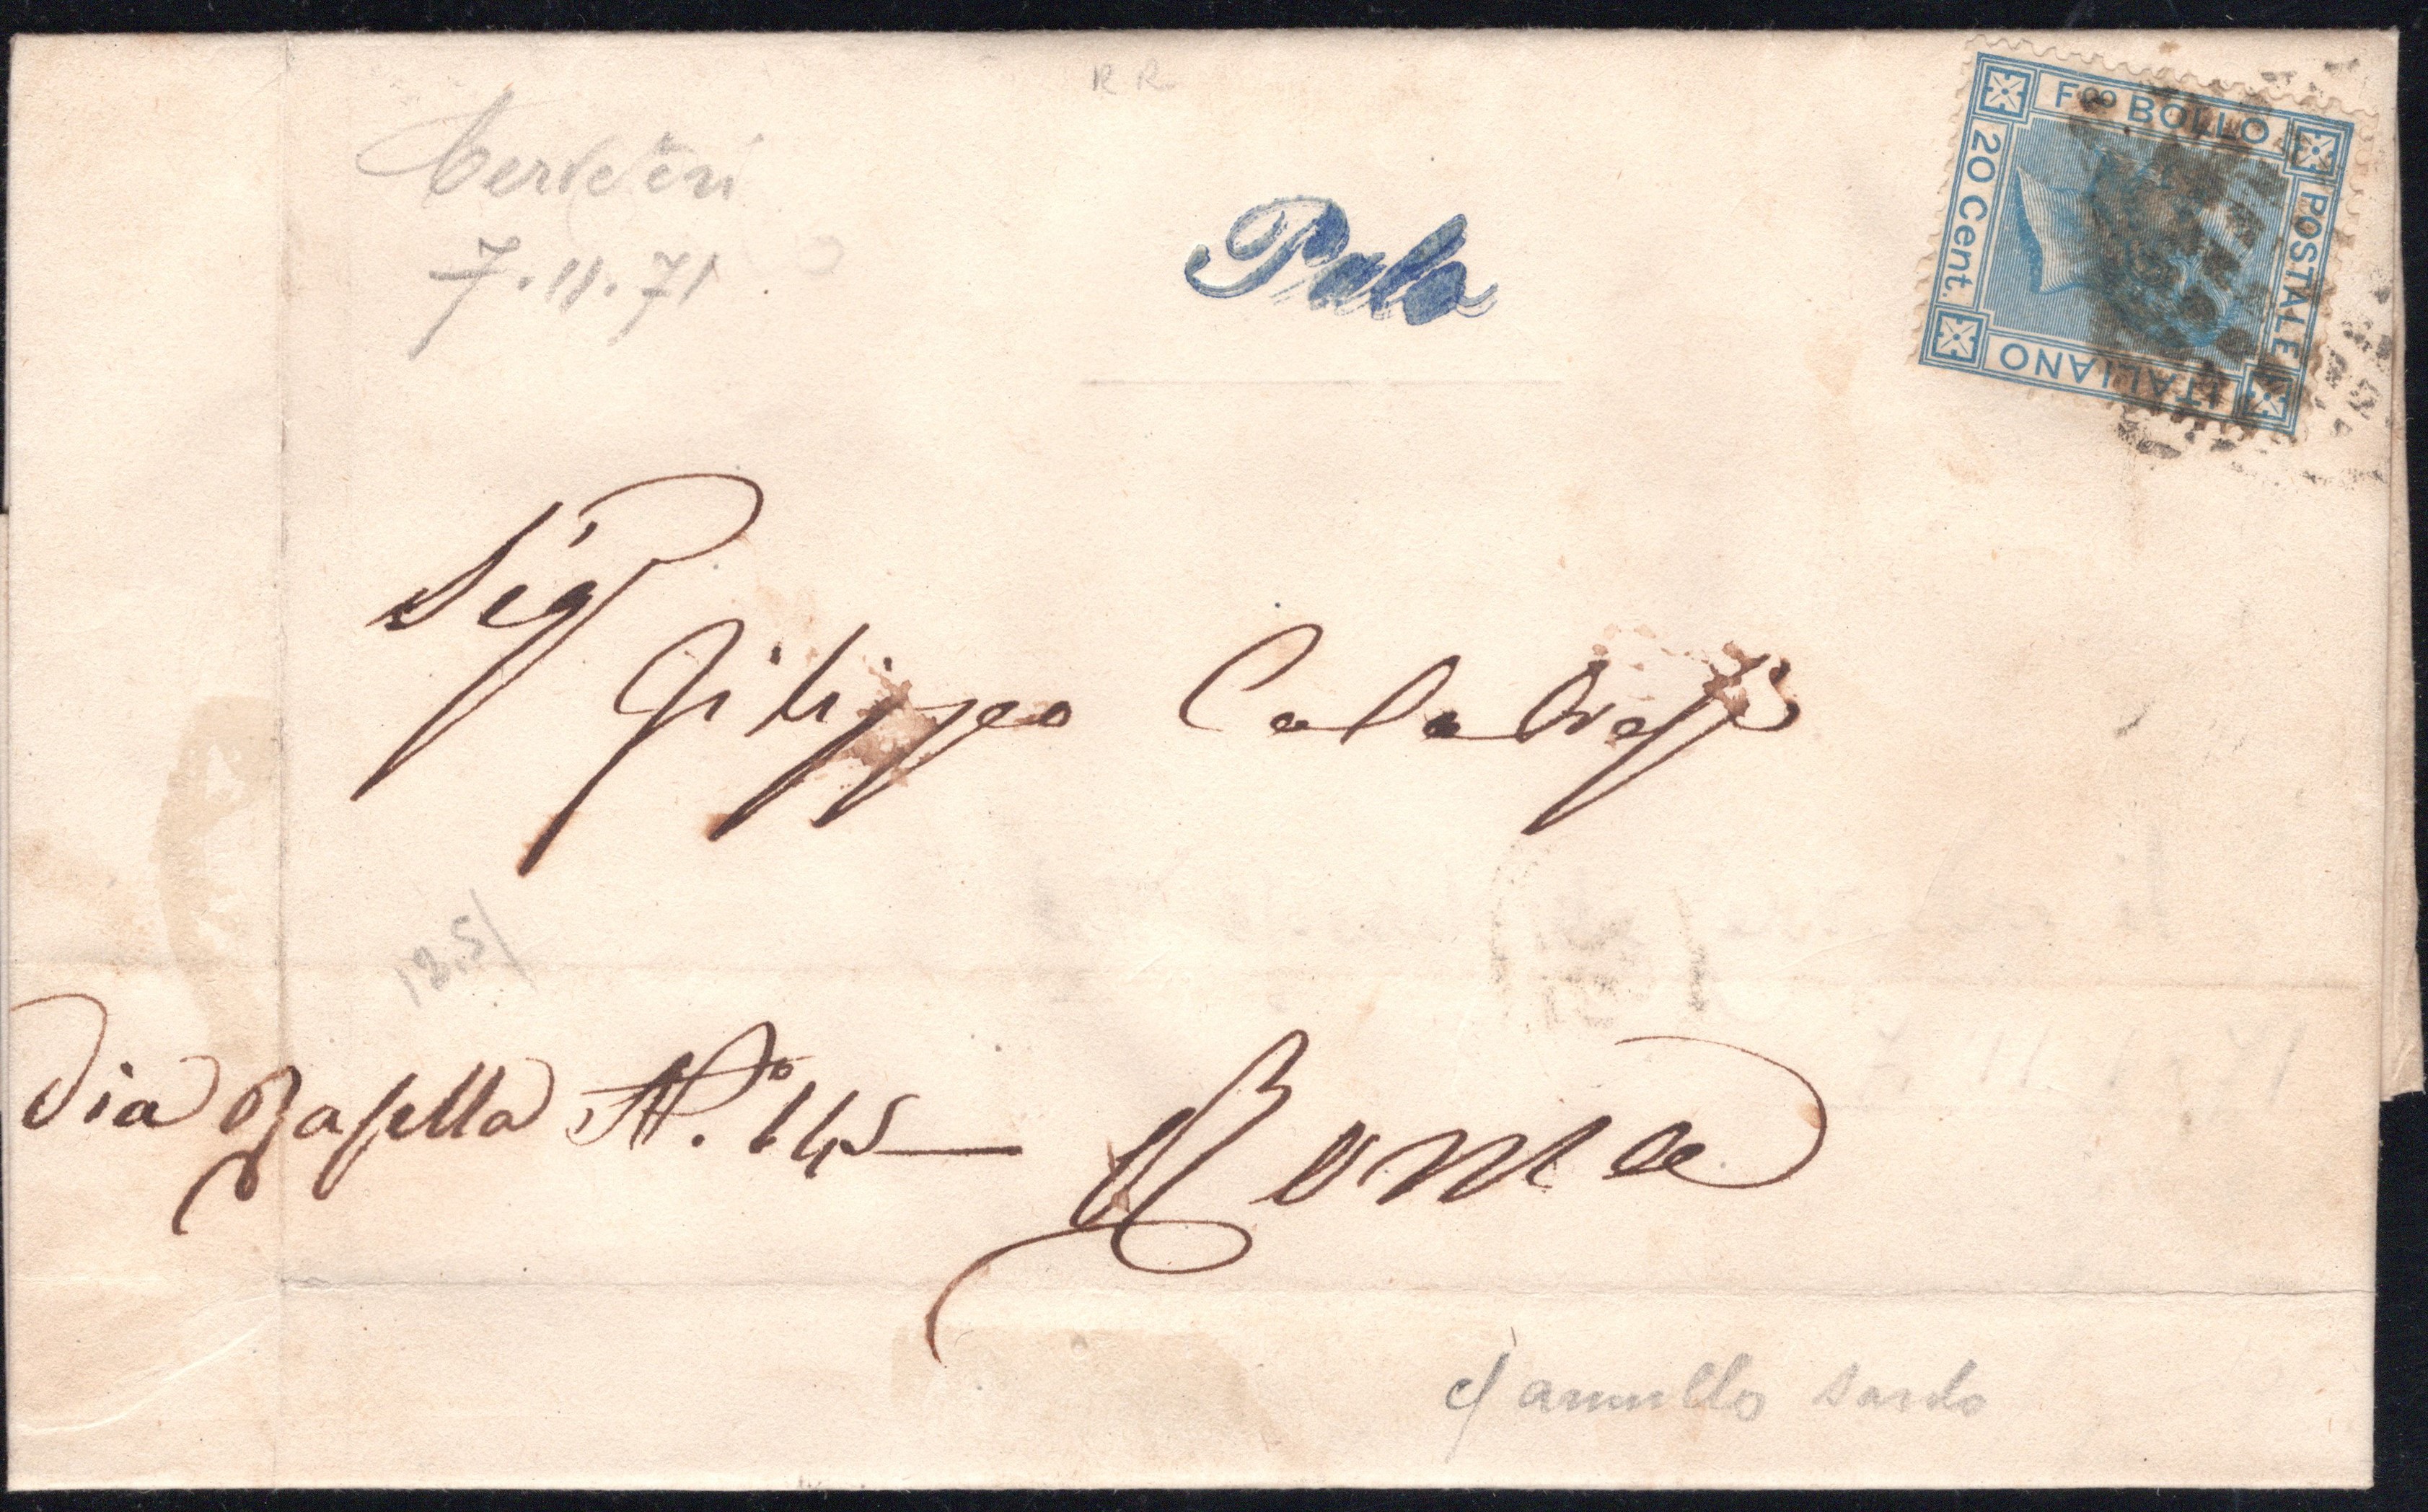 RR
Cerveteri
7.11.71
Palo
Fco BOLLO
POSTALE
ITALIANO
20 Cent.
Sigr
Filippo Calabresi
12.5/
Via Rasella No. 145 Roma
c/ annullo sardo